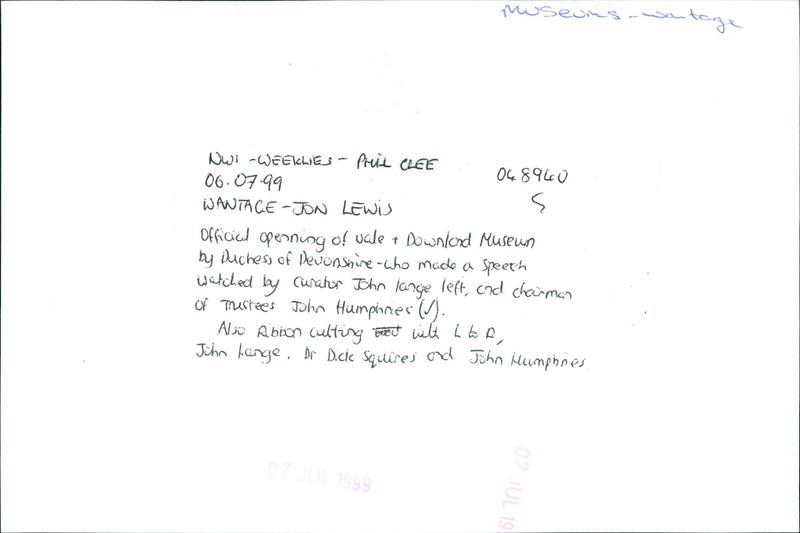 Museums - wantage
NWI - WEEKLIES - PHIL CLEE
06.07.99
048940
WANTAGE - JON LEWIS
S
Official openning of vale + Downland Museum
by Duchess of Devonshire - who made a speech
watched by curator John Lange left, and chairman
of Trustees John Humphries (√).
Also Ribbon cutting with L to R,
John Lange, Dr Dick Squires and John Humphries
07 JUL 1999
07 JUL 19